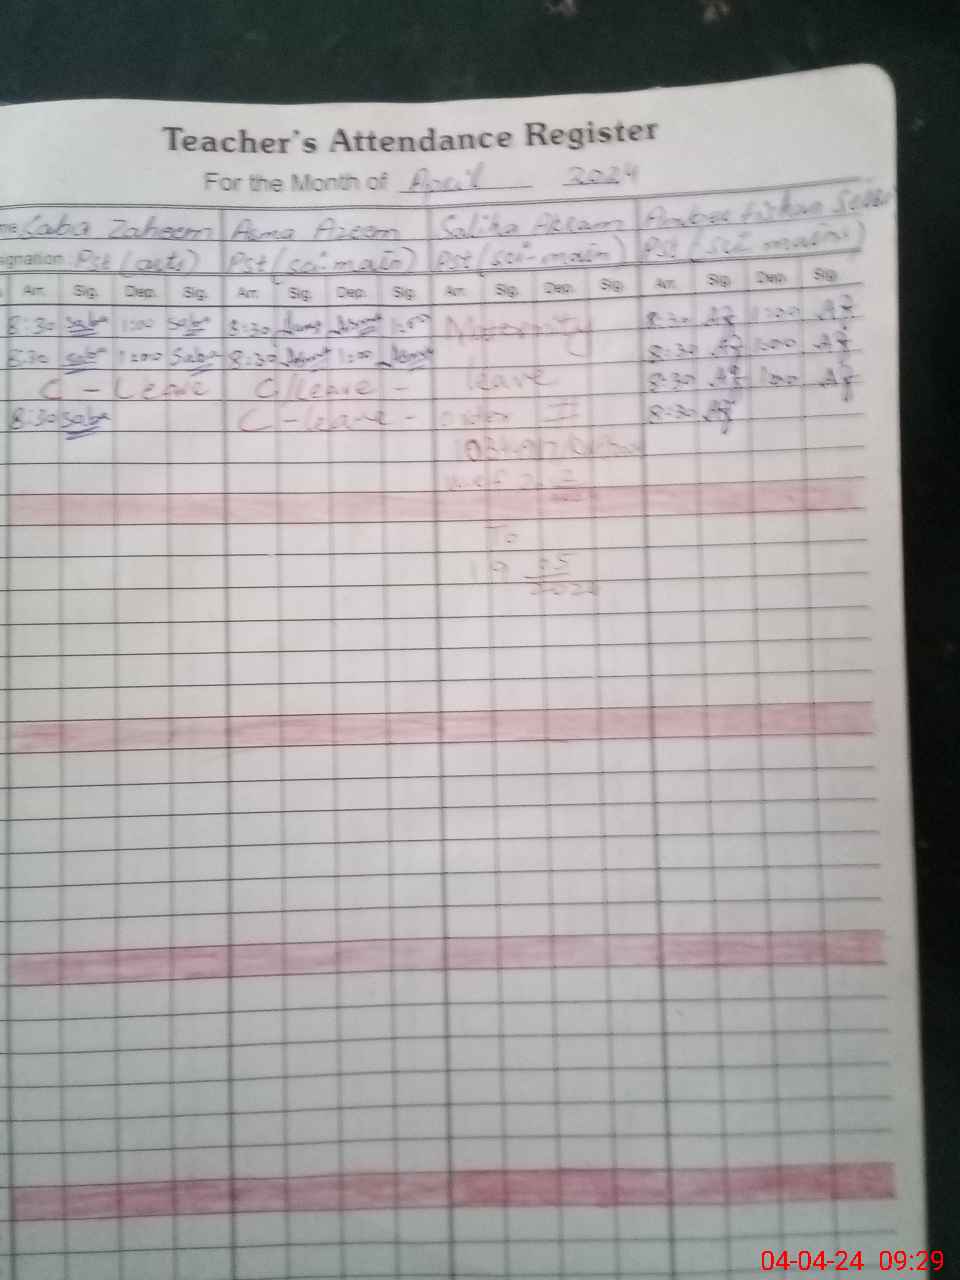 Teacher's Attendance Register
For the Month of April 2024
me Saba Zaheem Asma Azeem Saliha Akram Amber
ignation Pst (arts) Pst (sci-math) Pst (sci-math) Pst (sci math)
Arr. Sig. Dep. Sig. Arr. Sig. Dep. Sig. Arr. Sig. Dep. Sig. Arr. Sig. Dep. Sig.
8:30 Saba 1:00 Saba 8:30 1:00 Maternity 8:30 1:00
8:30 Saba 1:00 Saba 8:30 1:00 8:30 1:00
C - Leave C/Leave - leave 8:30 1:00
8:30 Saba C - leave - order # 8:30
w.e.f
To
19 05
2024
04-04-24 09:29